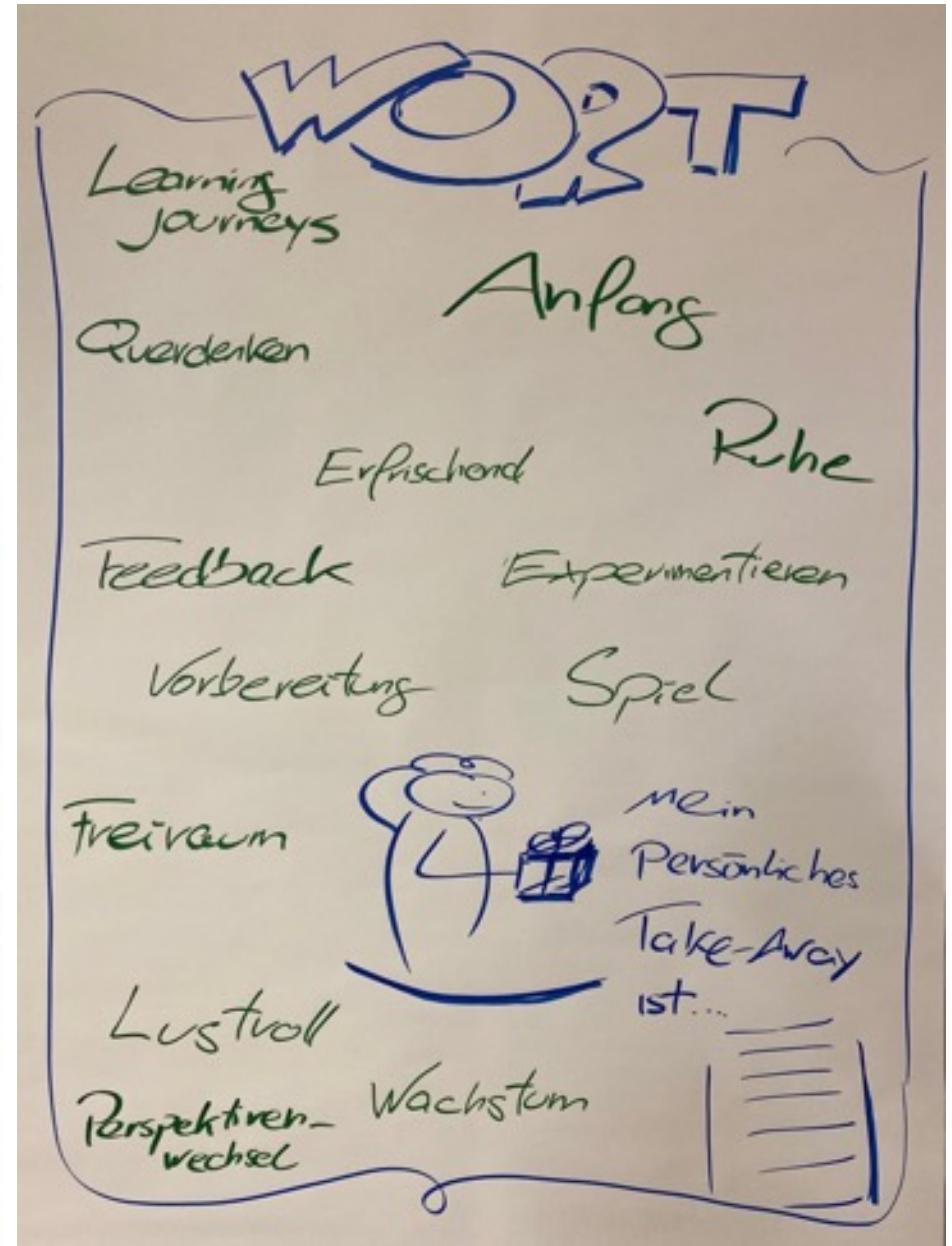 WORT
Learning
Journeys
Anfang
Querdenken
Ruhe
Erfrischend
Feedback
Experimentieren
Vorbereitung
Spiel
Freiraum
Mein
Persönliches
Take-Away
ist...
Lustvoll
Wachstum
Perspektiven-
wechsel